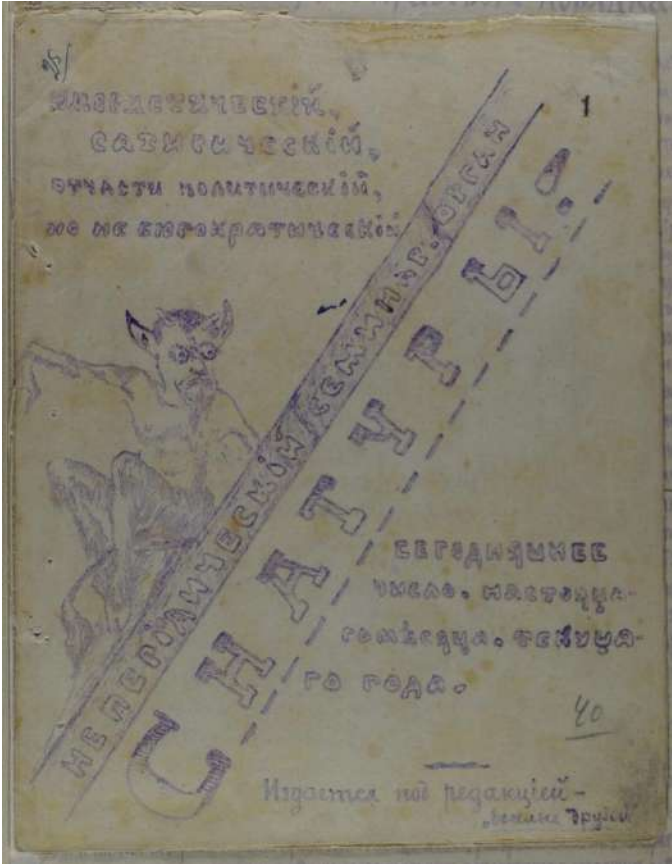 1
юмористическій,
сатирическій,
отчасти политическій,
но не бюрократическій
НЕПЕРІОДИЧЕСКІЙ СЕМИНАР. ОРГАН
С НАТУРЫ!
СЕГОДНЯШНЕЕ
число. настояща-
го мѣсяца. текуща-
го года.
40
Издается под редакціей –
друзей